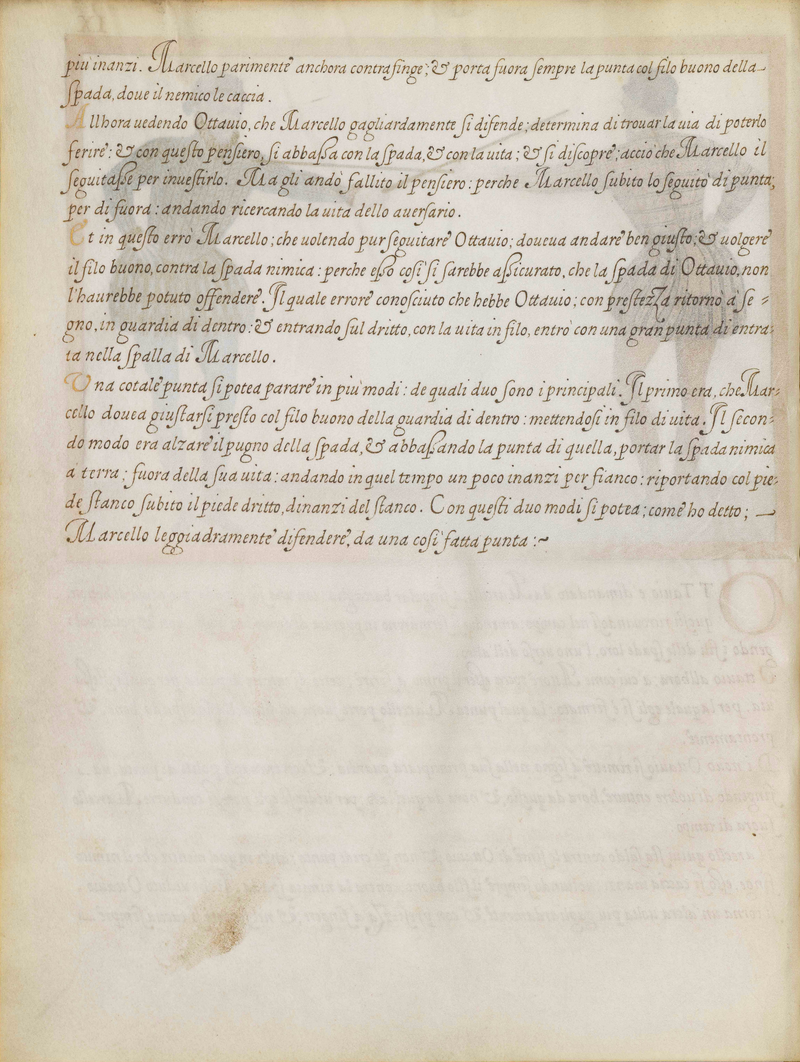 piu inanzi. Marcello parimente anchora contrafinge; & porta fuora sempre la punta col filo buono della
spada, doue il nemico le caccia.
Allhora uedendo Ottauio, che Marcello gagliardamente si difende; determina di trouar la uia di poterlo
ferire: & con questo pensiero, si abbassa con la spada, & con la uita; & si discopre; acciò che Marcello il
seguitasse per inuestirlo. Ma gli andò fallito il pensiero: perche Marcello subito lo seguitò di punta;
per di fuora: andando ricercando la uita dello auersario.
Et in questo errò Marcello; che uolendo pur seguitare Ottauio; doueua andare ben giusto; & uolgere
il filo buono, contra la spada nimica: perche esso cosi si sarebbe assicurato, che la spada di Ottauio, non
l'haurebbe potuto offendere. Il quale errore conosciuto che hebbe Ottauio; con prestezza ritornò à se =
gno, in guardia di dentro: & entrando sul dritto, con la uita in filo, entrò con una gran punta di entra=
ta nella spalla di Marcello.
Una cotale punta si potea parare in piu modi: de quali duo sono i principali. Il primo era, che Mar=
cello douea giustarsi presto col filo buono della guardia di dentro: mettendosi in filo di uita. Il secon=
do modo era alzare il pugno della spada, & abbassando la punta di quella, portar la spada nimica
a terra; fuora della sua uita: andando in quel tempo un poco inanzi per fianco: riportando col pie=
de stanco subito il piede dritto, dinanzi del stanco. Con questi duo modi si potea; come ho detto;
Marcello leggiadramente difendere, da una cosi fatta punta :~